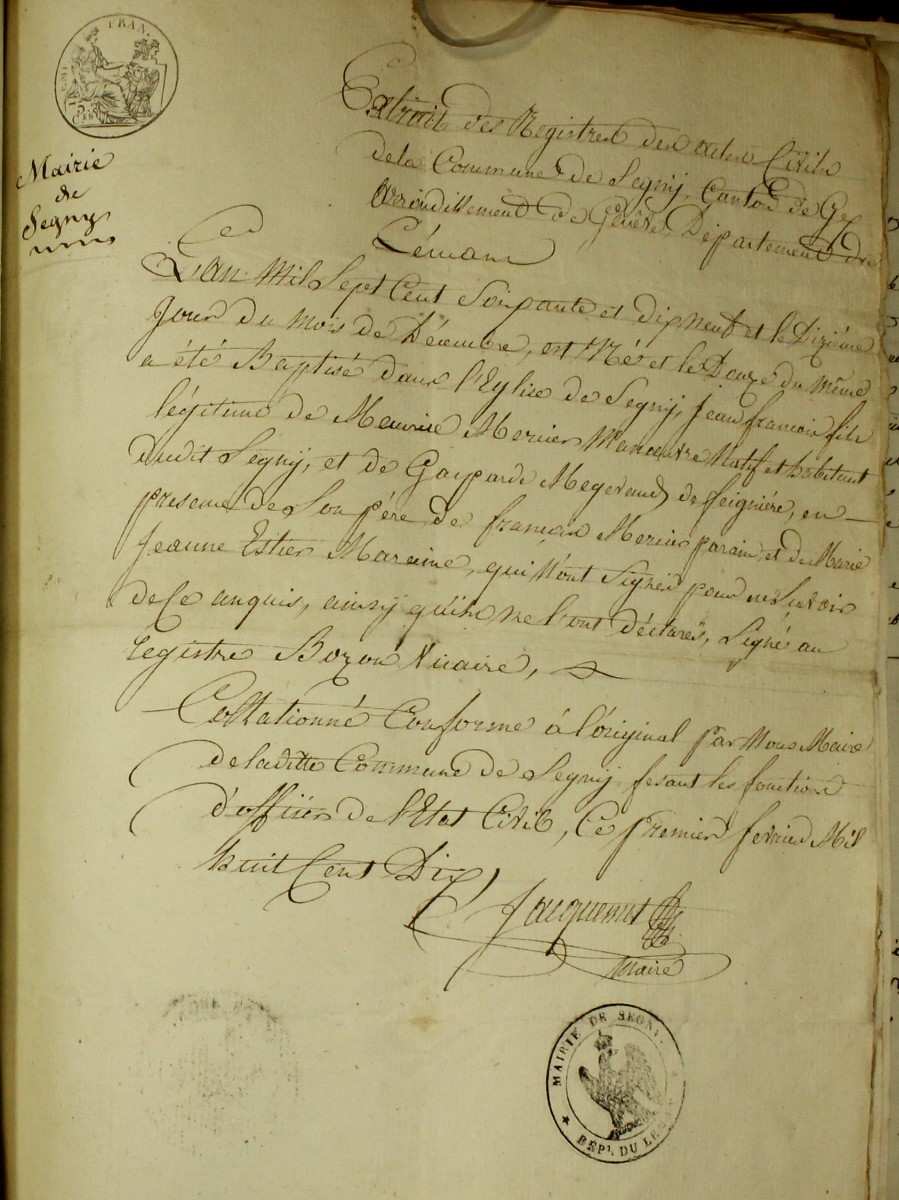 EMP. FRAN.
75 CEN.
Mairie
de
Segny
Extrait des Registres des actes Civils
de la Commune de Segny, Canton de Gex
arrondissement de Genêve, Département du
Léman
L'an Mil Sept Cent Soixante et dixneuf et le Dixième
Jour du mois de Décembre, est Né et le Douze du même
a été Baptisé dans l'Eglise de Segny, Jean françois fils
légitime de Maurice Mernier Manœuvre Natif et habitant
dudit Segny, et de Gasparde Megevand de feignière, en
presence de Son père de françois Mernier parain, et de Marie
Jeanne Estier Maraine, qui N'ont Signés pour ne Savoir
de Ce anquis, ainsy qu'ils me l'ont déclarés, Signé au
registre Bozon Vicaire,
Collationné Conforme à l'original par Nous Maire
de laditte Commune de Segny fesant les fonctions
d'officier de l'Etat Civil, Ce premier fevrier Mil
huit Cent Dix
Jacquemet
Maire
MAIRIE DE SEGNY.
DÉPt. DU LEMAN